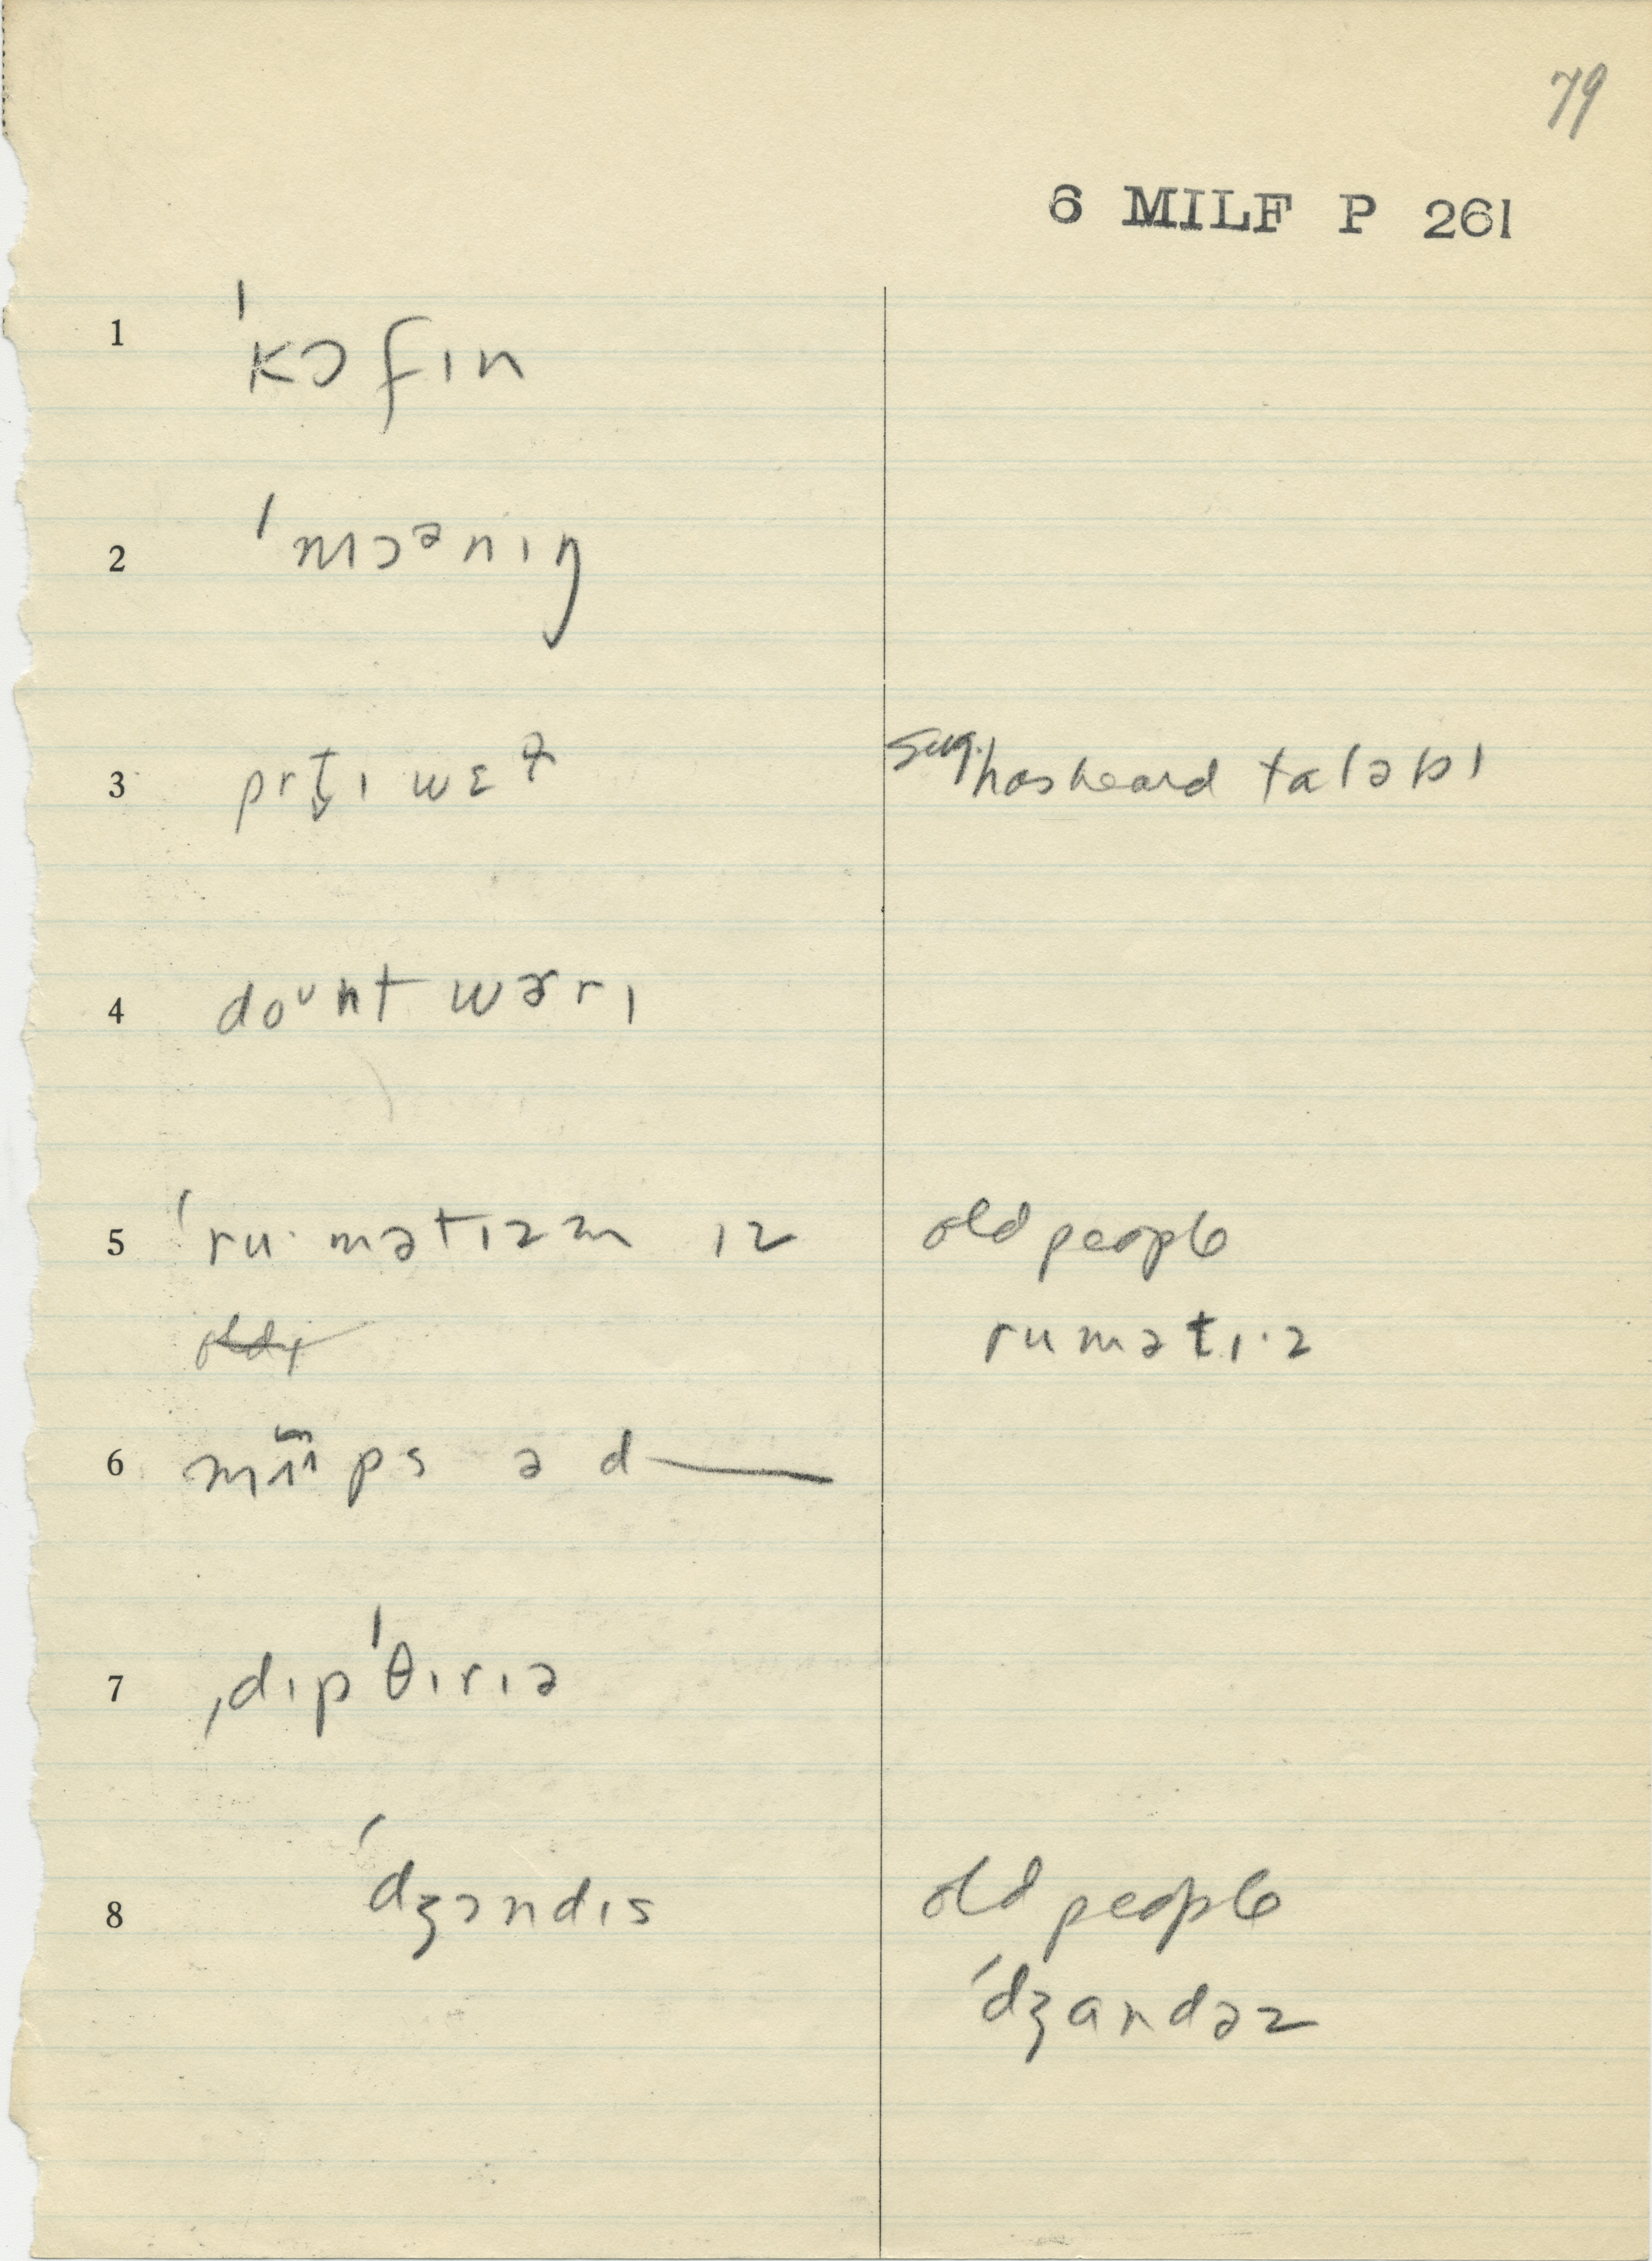 79
6 MILF P 261
1 ˈkɔfɪn
2 ˈmɔᵊnɪŋ
3 prt̬ɪ wɛ sug. has heard taləbl
4 doᵘnt wɝrɪ
5 ˈru·mətɪzm ɪz old people
rumətɪ·z
6 ps ə d—
7 ˌdɪpˈθɪrɪə
8 ˈdʒɔndɪs old people
ˈdʒandəz